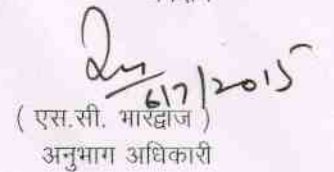 6/7/2015
( एस.सी. भारद्वाज )
अनुभाग अधिकारी